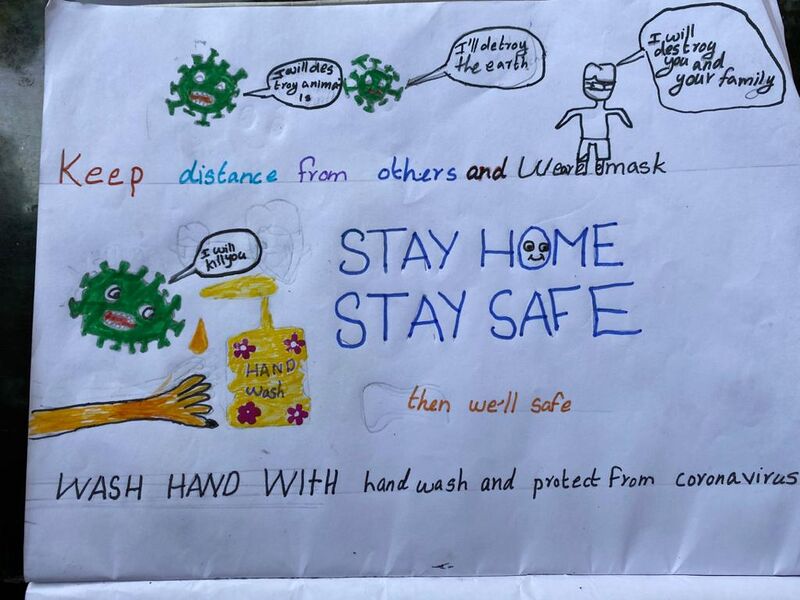 I will des
troy anima
ls
I'll detroy
the earth
I will
destroy
you and
your family
Keep distance from others and Wear mask
I will
kill you
STAY HOME
STAY SAFE
HAND
Wash
then we'll safe
WASH HAND WITH hand wash and protect from coronavirus